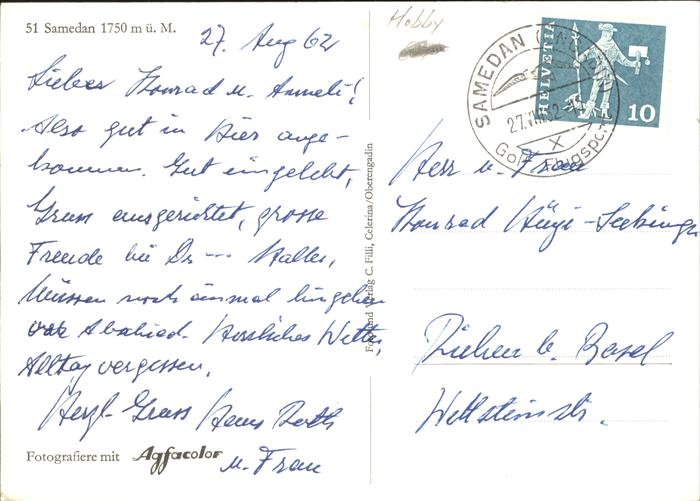 51 Samedan 1750 m ü. M.
27. Aug 62
Lieber Konrad u. Anneli!
Also gut in Hier ange-
kommen. Gut eingelebt,
Gruss ausgerichtet, grosse
Freude bei Dr --- Walter,
Müssen noch einmal hingehen
vor Abschied. Herrliches Wetter,
Alltag vergessen.
Herzl. Gruss Hans Roth
u. Frau
Fotografiere mit Agfacolor
Foto und Verlag C. Filli, Celerina/Oberengadin
Hobby
SAMEDAN
27.VIII.62
Golf Flugsport
HELVETIA
10
Herr u. Frau
Konrad
Riehen b. Basel
Wettsteinstr.